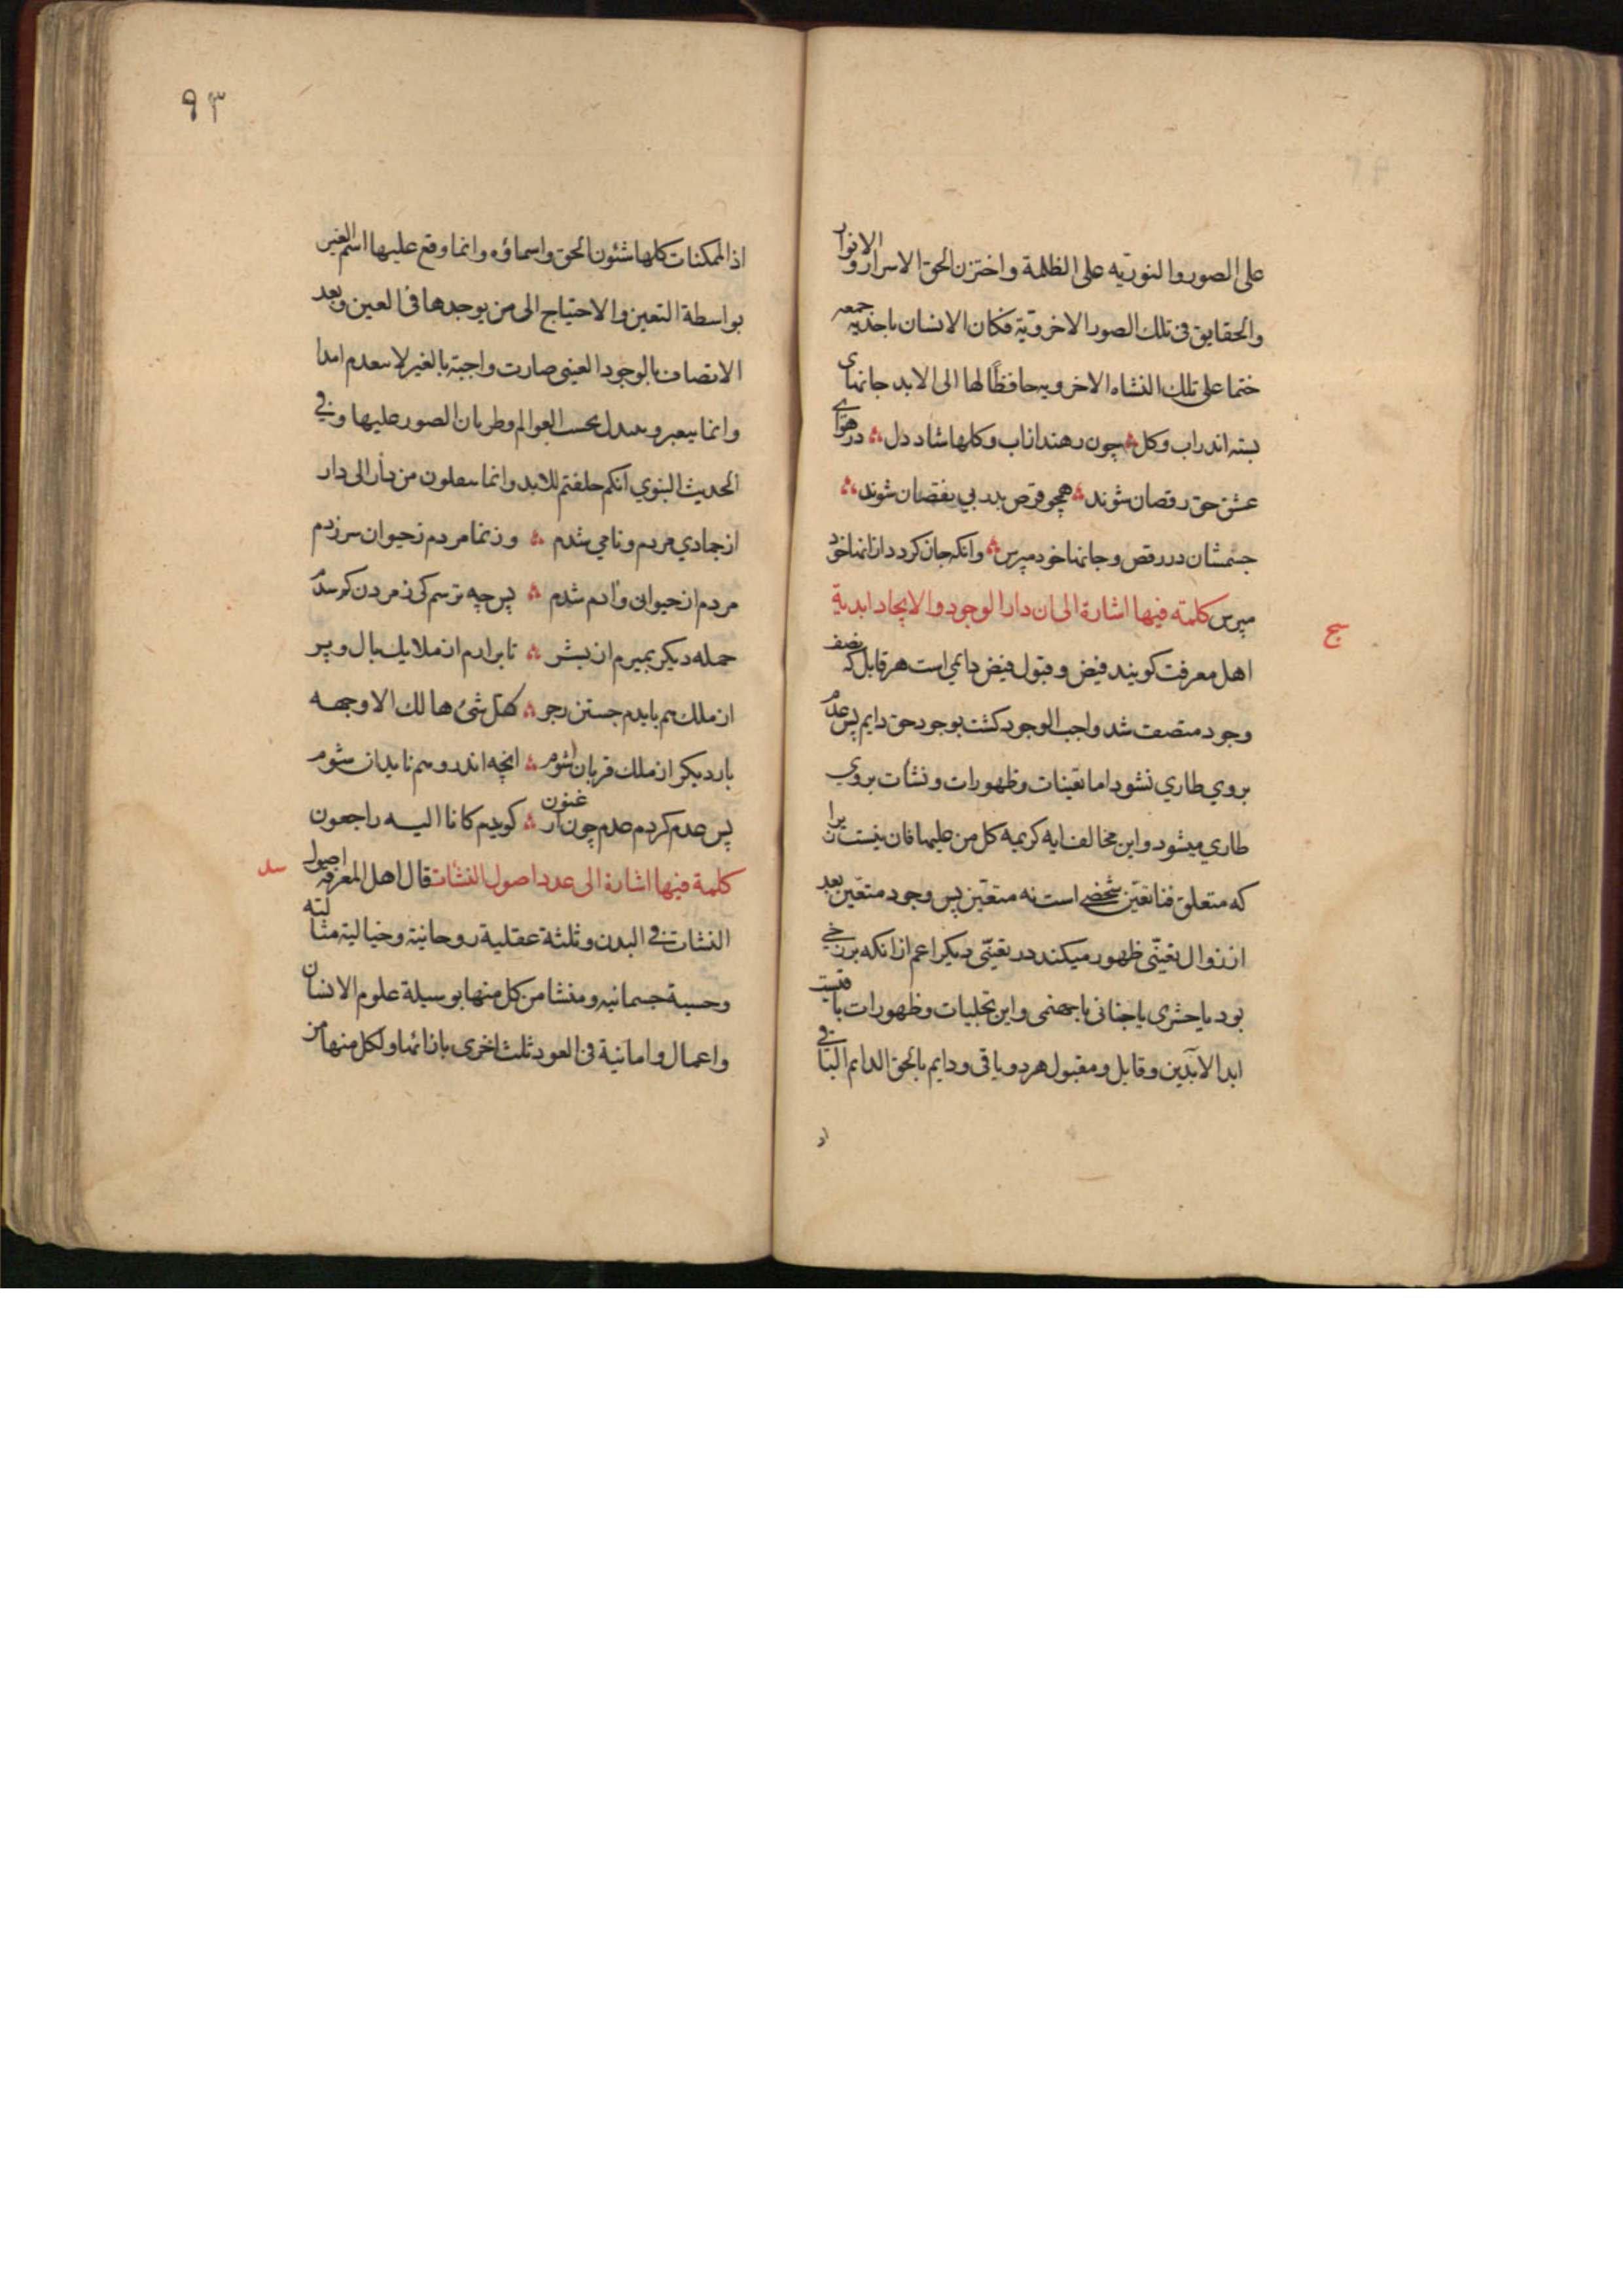 على الصور والنوريه على الظلمة واختزن الحق الاسرار والانوار
والحقايق فى تلك الصور الاخروية فكان الانسان باحدية جمعه
ختما على تلك النشاه الاخرويه حافظا لها الى الابد جانهاى
بسته اندر اب وكل چون رهند از اب وكلها شاد دل در هواے
عشق حق رقصان شوند همچو قرص بدر بي نقصان شوند
جسمشان در رقص و جانها خود مپرس وانكه جان كردد از انها خود
مپرس كلمة فيها اشارة الى ان دار الوجود والايجاد ابدية
سج
اهل معرفت كويند فيض و قبول فيض دايمي است هر قابل كه
وجود متصف شد واجب الوجود كشت بوجود حق دايم پس عدم
بروي طاري نشود اما تعينات وظهورات و نشأت بروي
طاري ميشود و اين مخالف ايه كريمه كل من عليها فان نيست زيرا
كه متعلق فنا تعين شخصے است نه متعين پس وجود متعين بعد
از زوال تعيني ظهور ميكند در تعيني ديكر اعم از انكه برزخے
بود يا حشرى يا جنانى يا جهنمى و اين تجليات وظهورات باقيست
ابد الابدين و قابل و مقبول هر دو باقى و دايم بالحق الدايم الباقے
اذ
٩٣
اذ الممكنات كلها شئون الحق واسماؤه وانما وقع عليها اسم الغير
بواسطة التعين والاحتياج الى من يوجدها فى العين وبعد
الاتصاف بالوجود العينى صارت واجبة بالغير لا سعدم ابدا
وانما يتغير و يتبدل بحسب العوالم وطريان الصور عليها وفي
الحديث النبوي انكم خلقتم للابد وانما تنقلون من دار الى دار
از جمادي مردم و نامي شدم وز نما مردم ز حيوان سر زدم
مردم از حيوانى و ادم شدم پس چه ترسم كى ز مردن كم شدم
حمله ديكر بميرم از بشر تا بر ارم از ملايك بال و پر
از ملك هم بايدم جستن ز جو كل شئ هالك الا وجهه
بار ديكر از ملك قربان شوم انچه اندر وهم نايد ان شوم
پس عدم كردم عدم چون ارغنون كويدم كانا اليه راجعون
كلمة فيها اشارة الى عدد اصول النشات قال اهل المعرفة اصول
سد
النشات فى البدن و ثلثة عقلية روحانية وخيالية مثالية
وحسية جسمانيه و منشا من كل منها بوسيلة علوم الانسان
واعمال و امانية فى العود ثلث اخرى بازائها ولكل منها من